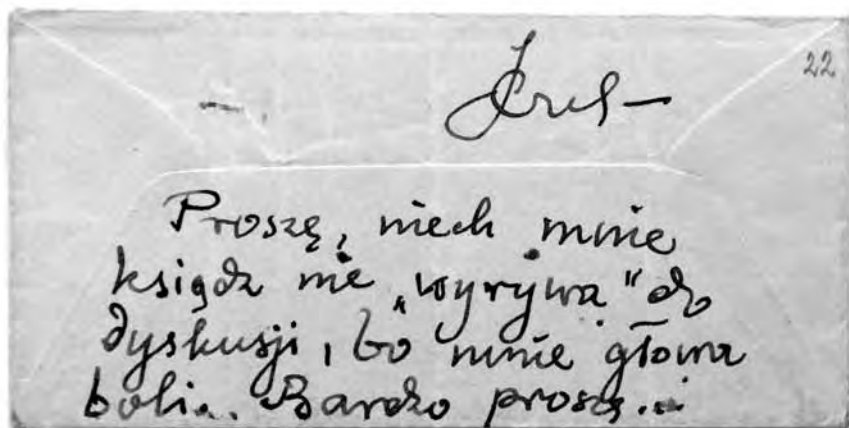 22
Proszę, niech mnie
ksiądz nie „wyrywa" do
dyskusji, bo mnie głowa
boli... Bardzo proszę...